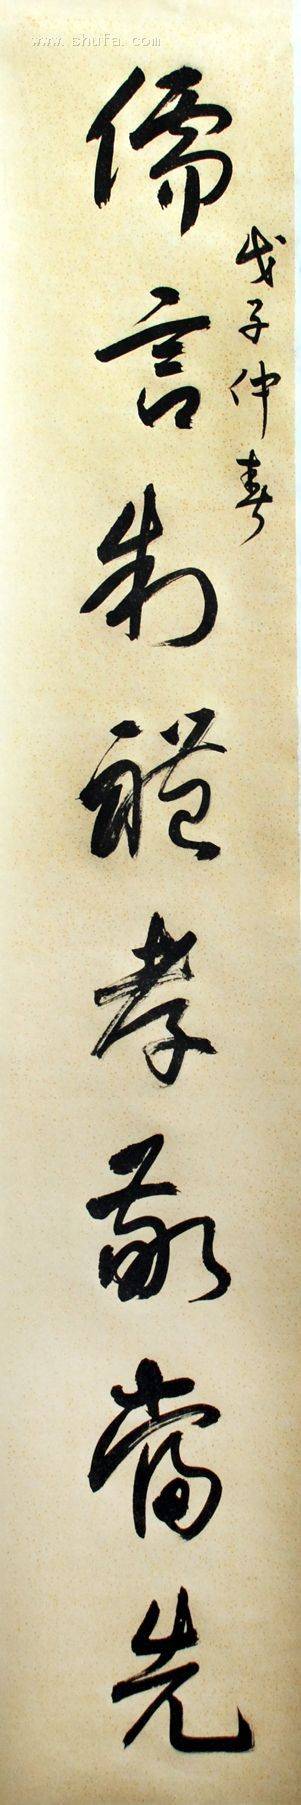 www.shufa.com
戊子仲春
儒言制禮孝敬當先